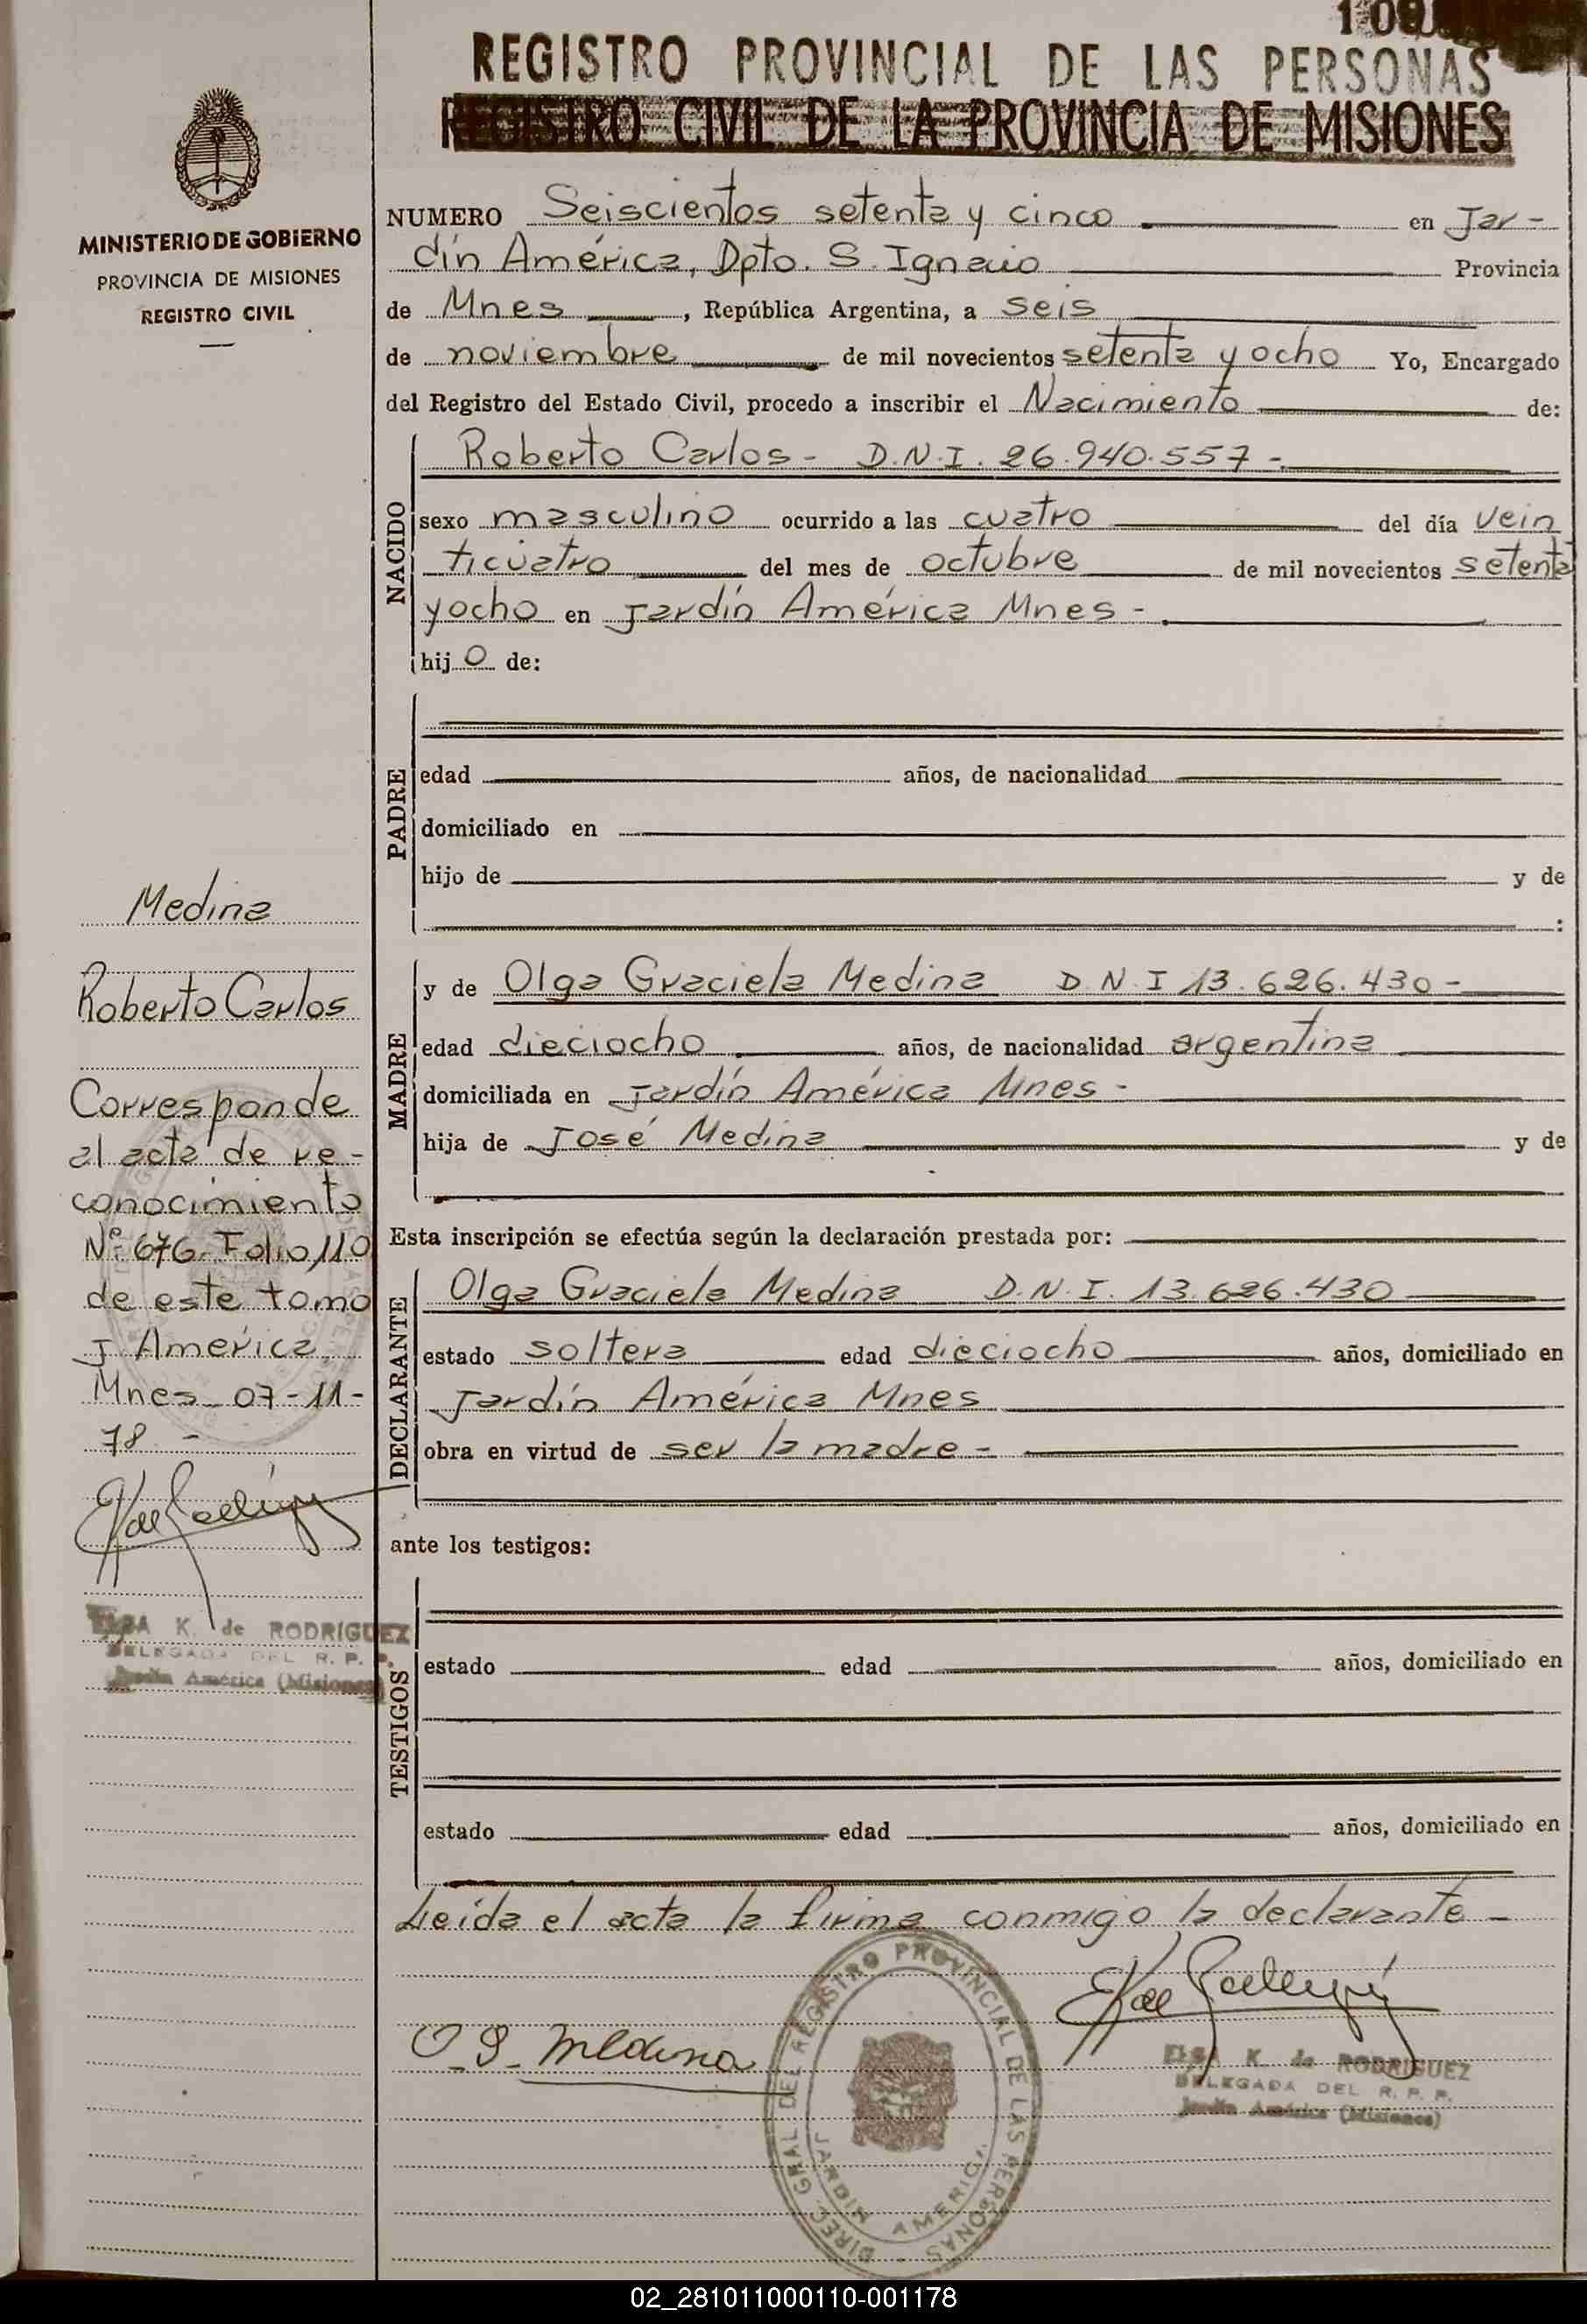 REGISTRO PROVINCIAL DE LAS PERSONAS
REGISTRO CIVIL DE LA PROVINCIA DE MISIONES
MINISTERIO DE GOBIERNO
PROVINCIA DE MISIONES
REGISTRO CIVIL
NUMERO Seiscientos setenta y cinco en Jar-
dín América, Dpto. S. Ignacio Provincia
de Mnes, República Argentina, a seis
de noviembre de mil novecientos setenta y ocho Yo, Encargado
del Registro del Estado Civil, procedo a inscribir el Nacimiento de:
NACIDO
Roberto Carlos - D.N.I. 26.940.557 -
sexo masculino ocurrido a las cuatro del día vein
ticuatro del mes de octubre de mil novecientos setenta
y ocho en Jardín América Mnes -
hijo de:
PADRE
edad años, de nacionalidad
domiciliado en
hijo de y de
:
MADRE
y de Olga Graciela Medina D.N.I 13.626.430 -
edad dieciocho años, de nacionalidad argentina
domiciliada en Jardín América Mnes -
hija de José Medina y de
Esta inscripción se efectúa según la declaración prestada por:
DECLARANTE
Olga Graciela Medina D.N.I. 13.626.430
estado soltera edad dieciocho años, domiciliado en
Jardín América Mnes
obra en virtud de ser la madre -
ante los testigos:
TESTIGOS
estado edad años, domiciliado en
estado edad años, domiciliado en
Leída el acta la firma conmigo la declarante -
O. G. Medina
DIREC. GRAL DEL REGISTRO PROVINCIAL DE LAS PERSONAS
JARDIN AMERICA
ELSA K. de RODRIGUEZ
DELEGADA DEL R. P. P.
Jardín América (Misiones)
Medina
Roberto Carlos
Corresponde
al acta de re-
conocimiento
Nº 676. Folio 110
de este tomo
J. América
Mnes 07-11-
78 -
ELSA K. de RODRIGUEZ
DELEGADA DEL R. P. P.
Jardín América (Misiones)
02_281011000110-001178